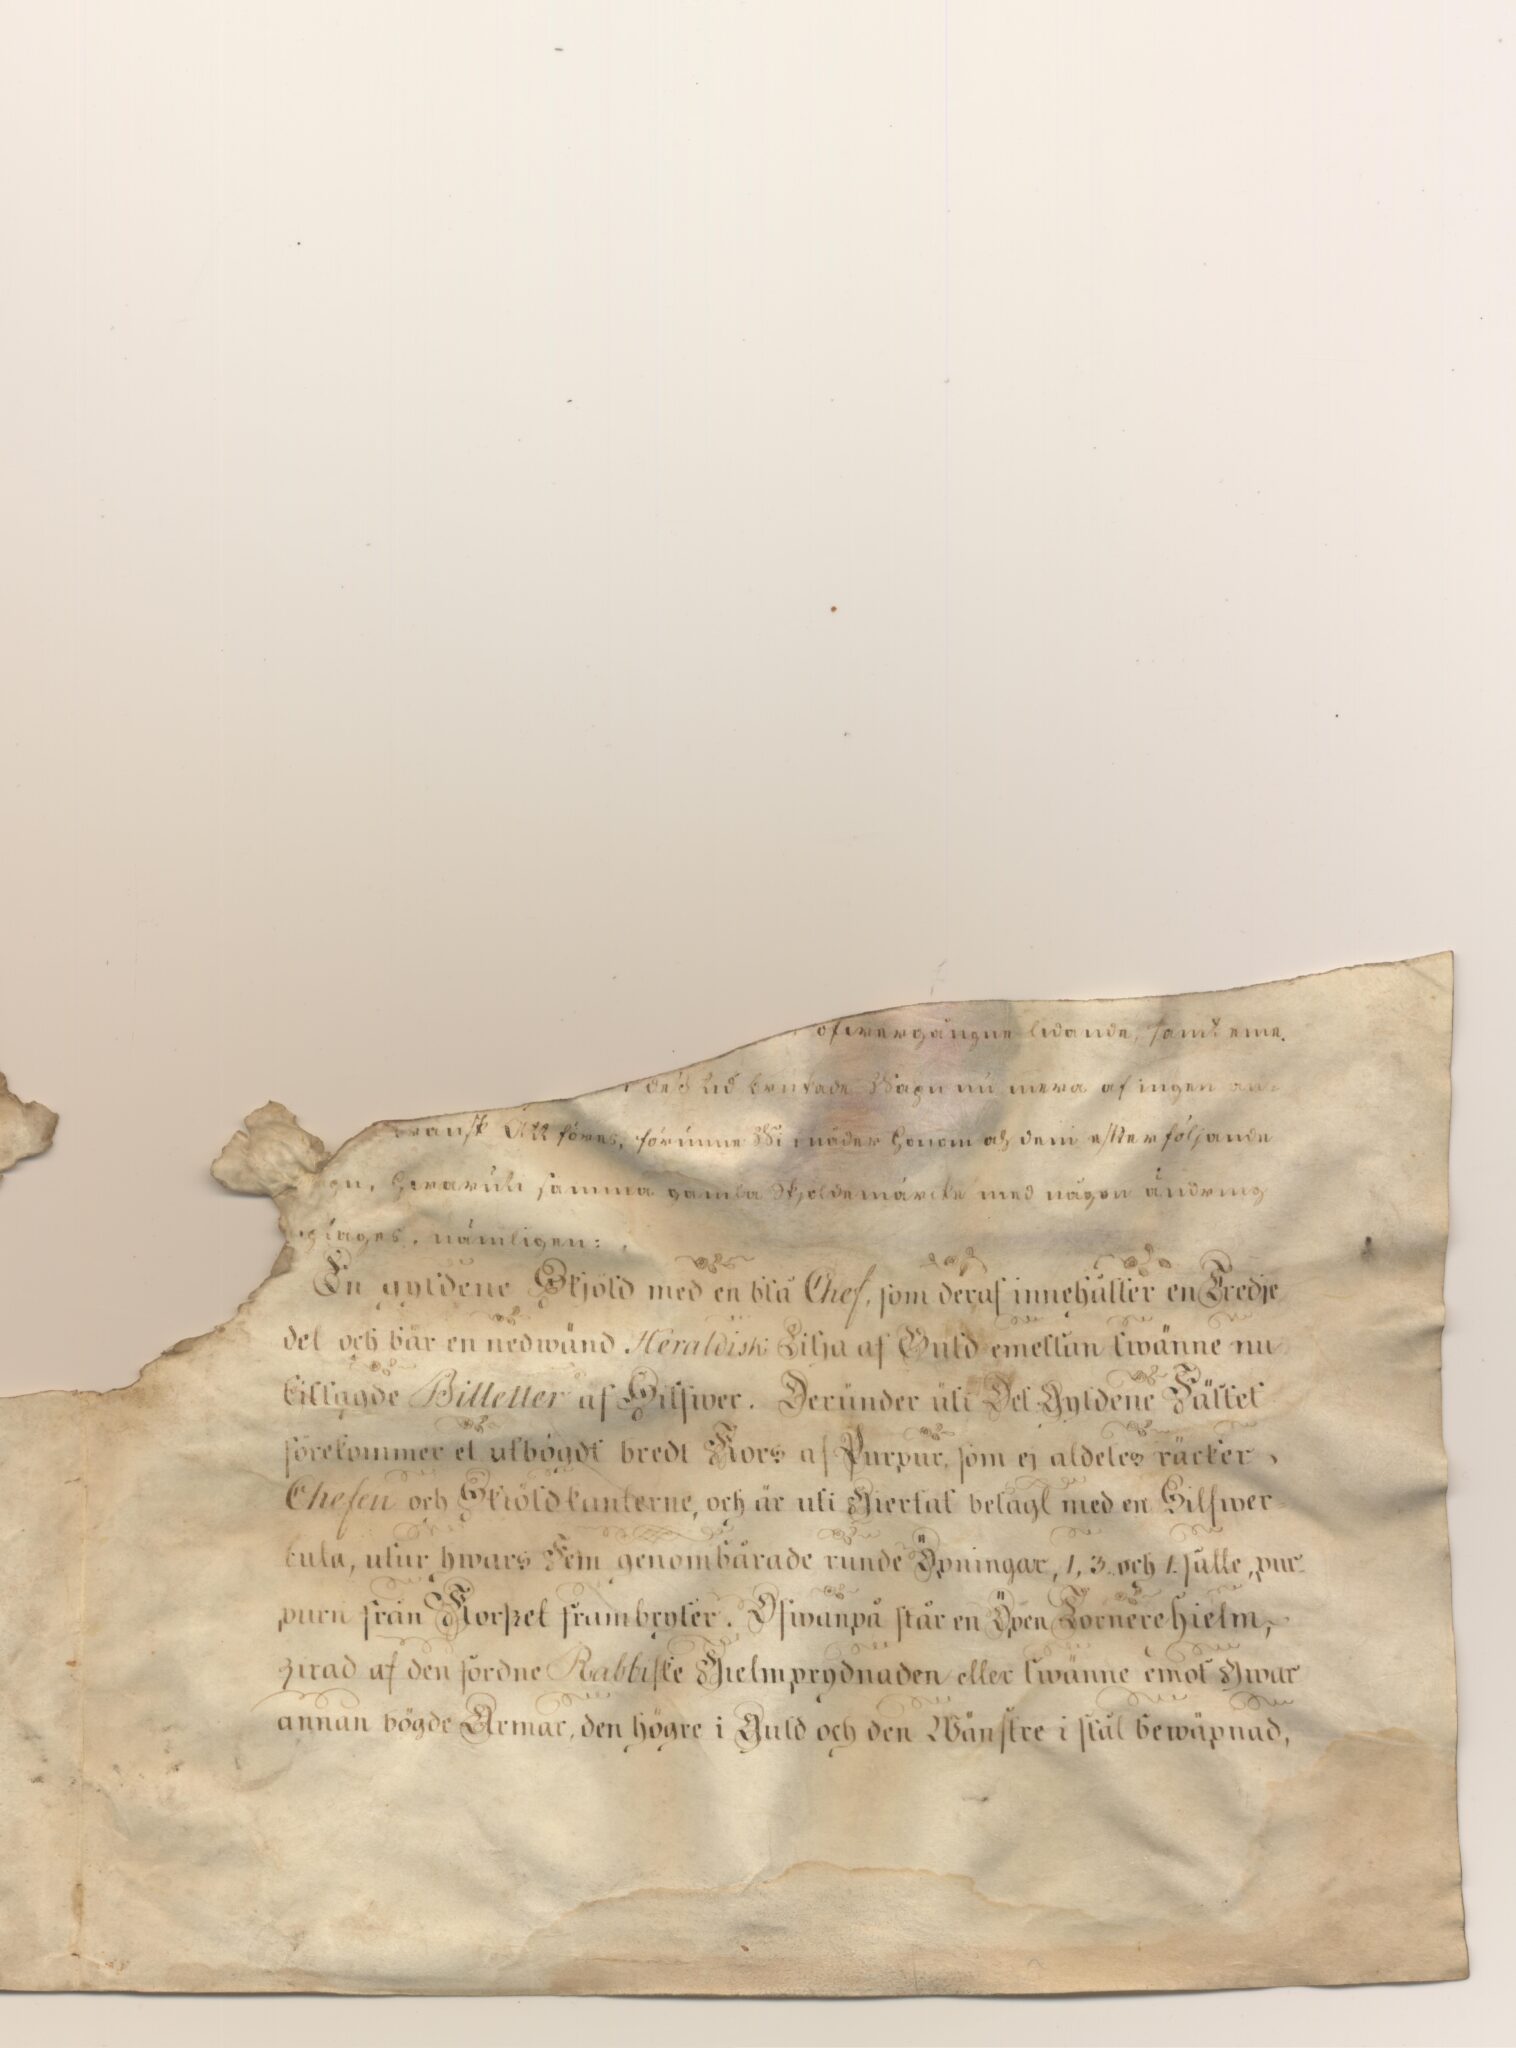 ofwergångne lidande, samt eme.
des tid brukade Wapn nu mera af ingen an-
Ätt föres, förunne Wi i nåder honom och dem efterföljande
hwaruti samma gamla Skjöldemärcke med någon ändring
nämligen:
En gyldene Skjöld med en blå Chef, som deraf innehåller en Tredje
del och bär en nedwänd Heraldisk Lilja af Guld emellan twänne nu
tillagde Billetter af Silfwer. Derunder uti Det Gyldene Fältet
förekommer et utbögdt bredt Kors af Purpur, som ej aldeles räcker
Chefen och Skiöldkanterne, och är uti Hiertat belagt med en Silfwer-
kula, utur hwars Fem genomborade runde Öpningar, 1, 3. och 1. sälle, pur-
purn från Korszet frambryter. Ofwanpå står en Öpen Tornerehielm,
zirad af den fördne Rabbiske Hielmprydnaden eller twänne emot Hwar
annan bögde Armar, den högre i Guld och den Wänstre i stål bewäpnad,